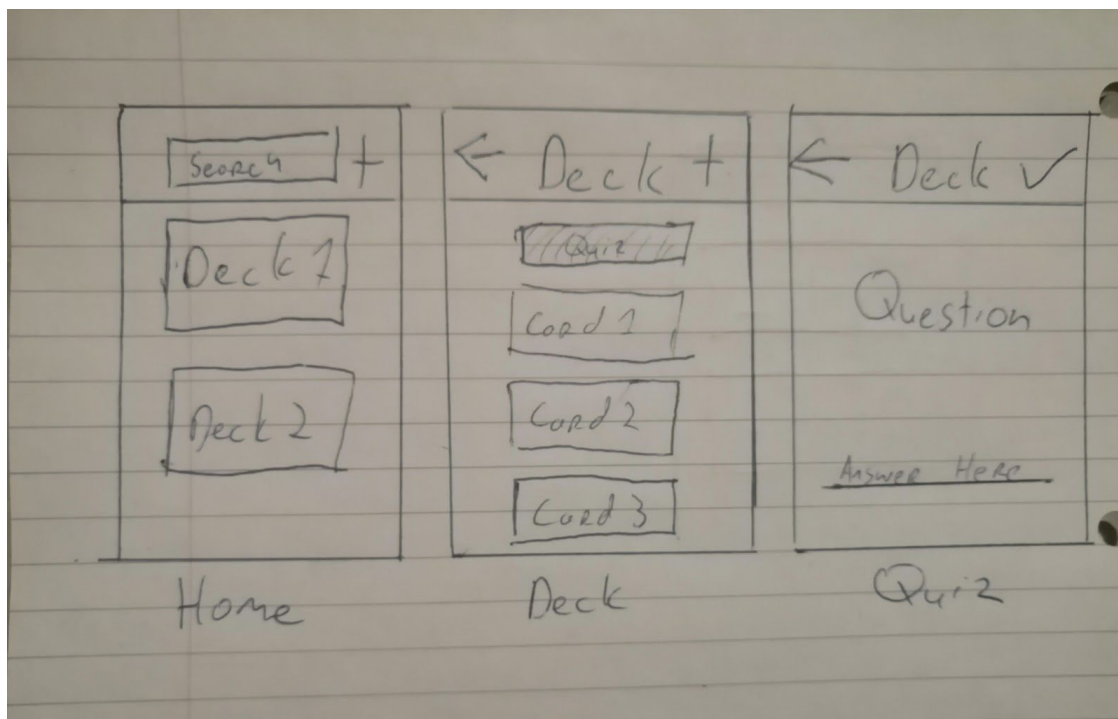 Search +
Deck 1
Deck 2
Home
← Deck +
Quiz
Card 1
Card 2
Card 3
Deck
← Deck ✓
Question
Answer Here
Quiz